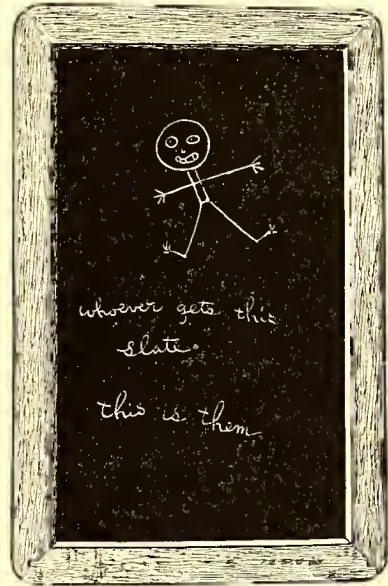 whoever gets this
slate.
this is them